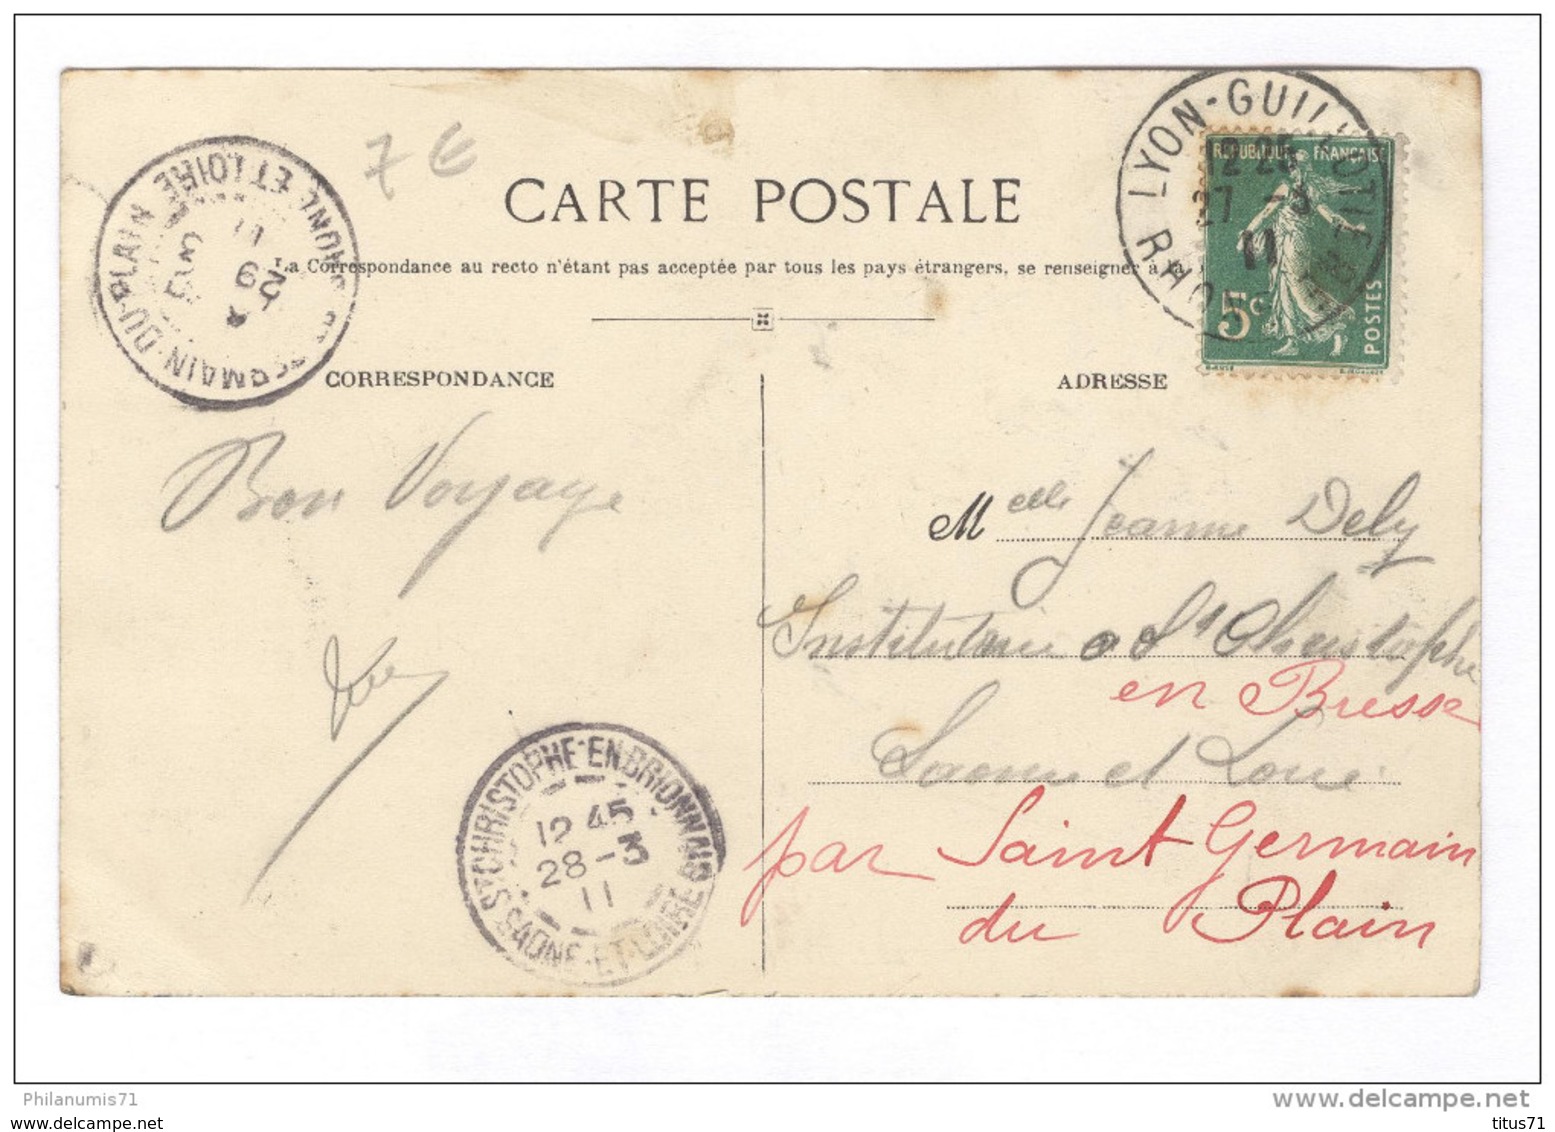 7 €
CARTE POSTALE
La Correspondance au recto n'étant pas acceptée par tous les pays étrangers, se renseigner à la
CORRESPONDANCE
ADRESSE
LYON-GUILLOTIÈRE
RHÔNE
12 25
27 -3
11
RÉPUBLIQUE FRANÇAISE
5c
POSTES
ST GERMAIN-DU-PLAIN
SAONE ET LOIRE
29
3
11
Bon Voyage
Melle Jeanne Dely
Institutrice a St Christophe
en Bresse
Saone et Loire
par Saint Germain
du Plain
ST CHRISTOPHE-EN-BRIONNAIS
12 45
28 -3
11
SAONE-ET-LOIRE
Philanumis71
www.delcampe.net
titus71